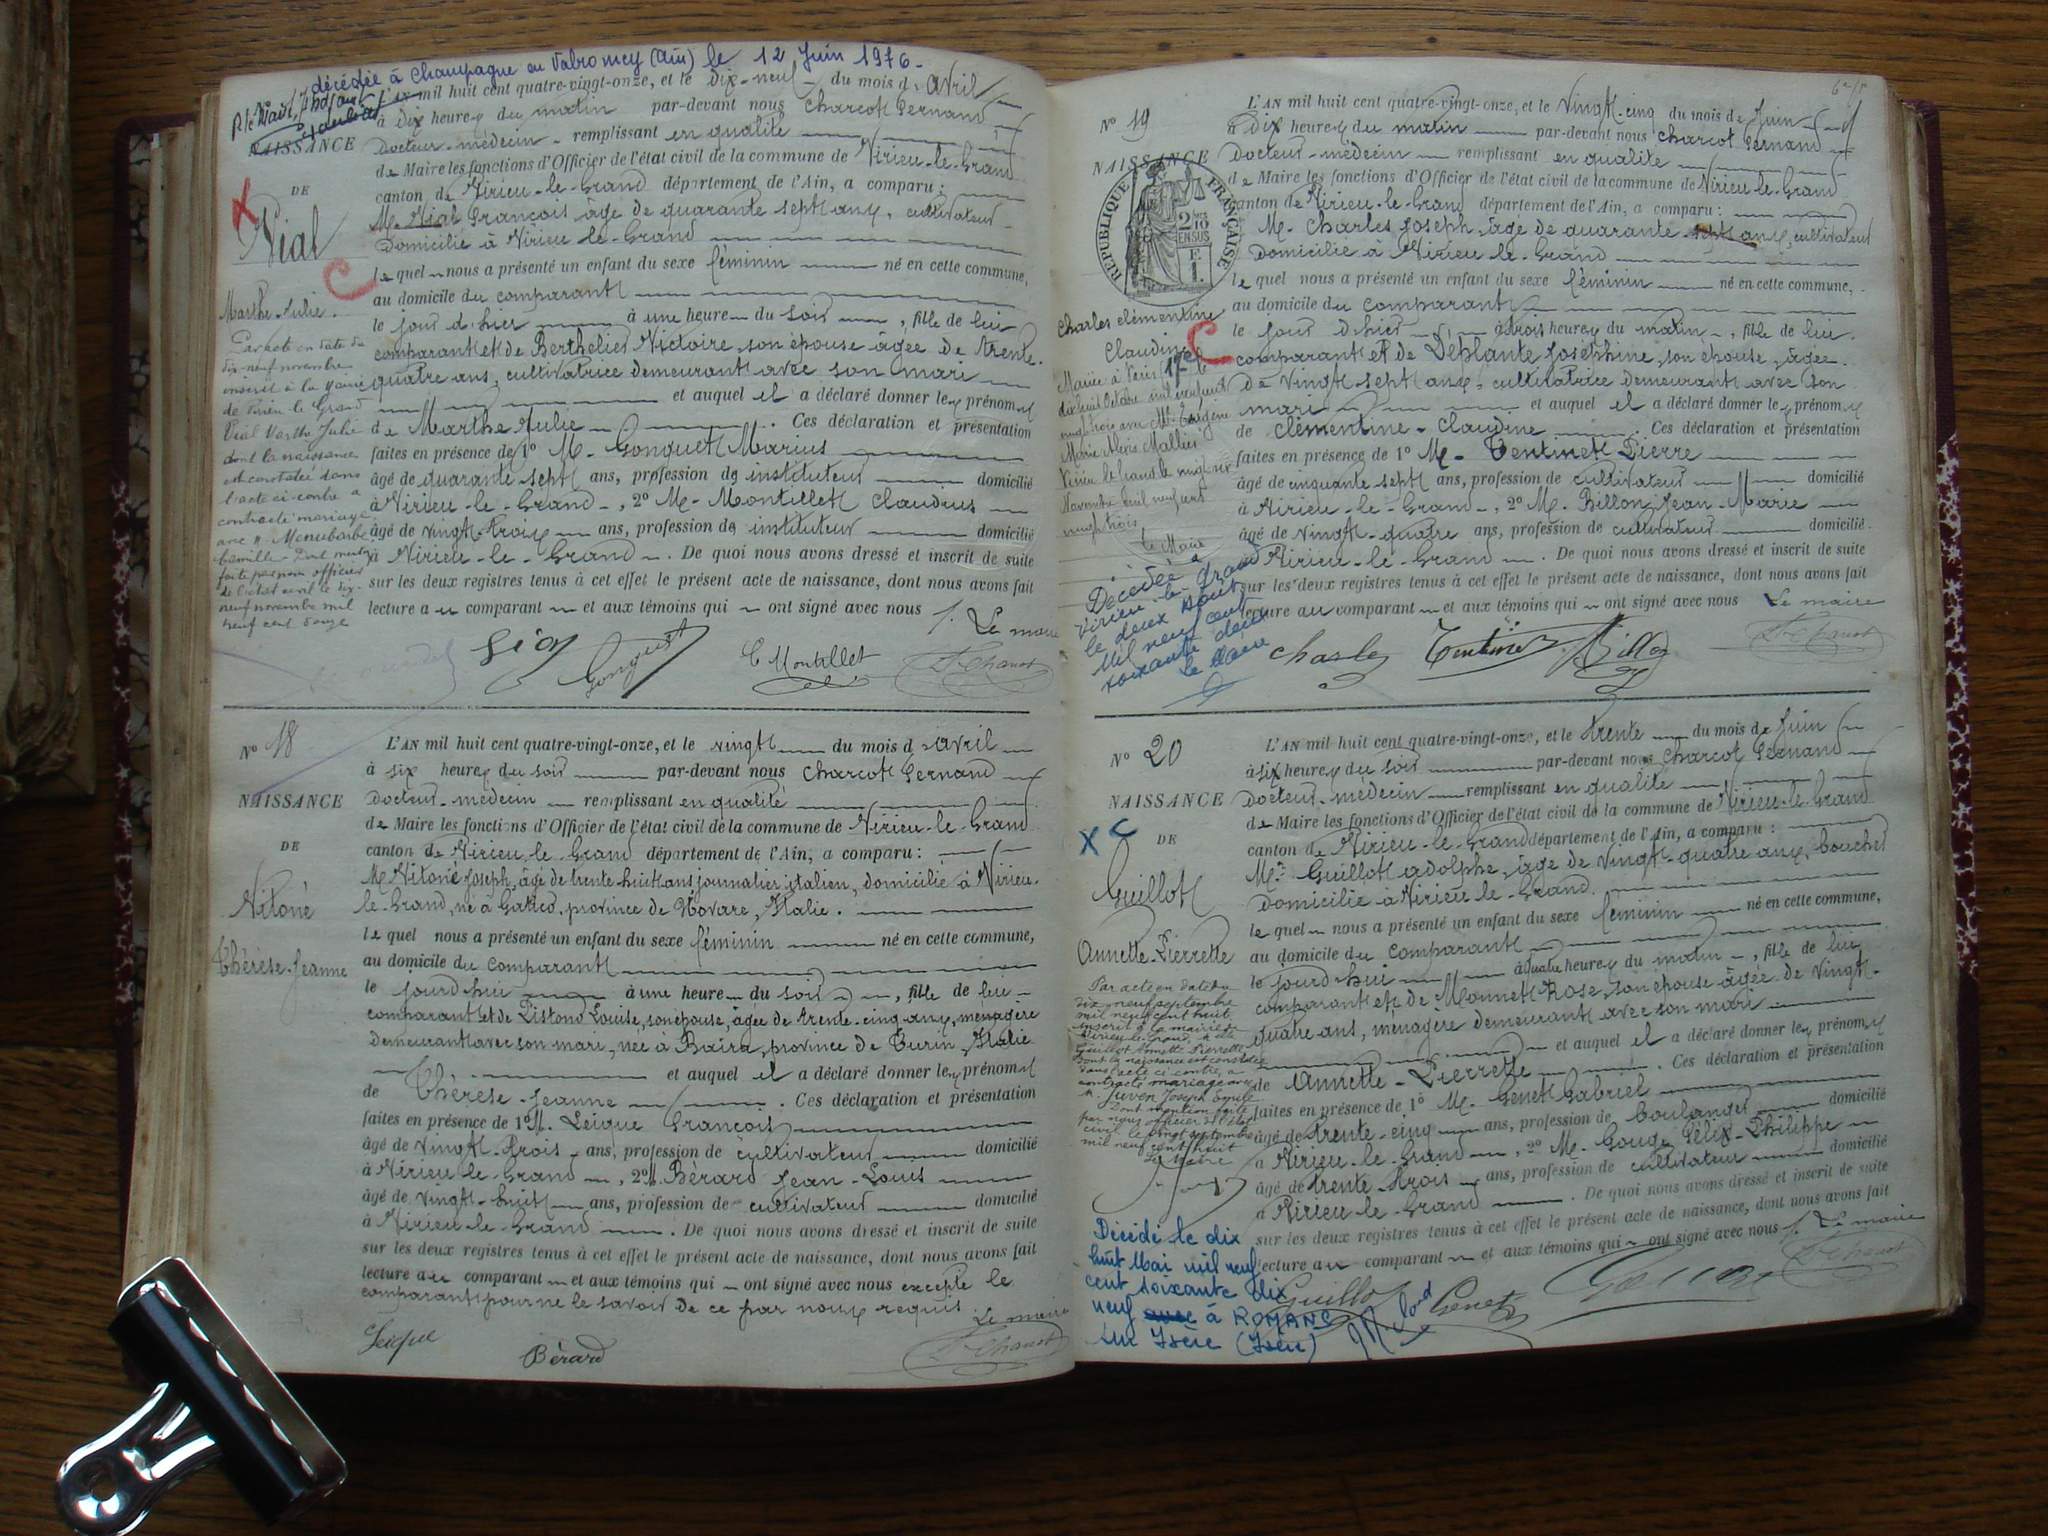 décédée à Champagne en Valromey (Ain) le 12 Juin 1976.
L'AN mil huit cent quatre-vingt-onze, et le Dix-neuf du mois d'Avril
à Dix heures du matin par-devant nous Charcot Fernand
NAISSANCE
Docteur-médecin remplissant en qualité
DE
de Maire les fonctions d'Officier de l'état civil de la commune de Virieu-le-Grand
canton de Virieu-le-Grand département de l'Ain, a comparu :
Vial
M. Vial François âgé de quarante sept ans, cultivateur
Domicilié à Virieu-le-Grand
lequel nous a présenté un enfant du sexe féminin né en cette commune,
C
au domicile du comparant
Marthe-Julie.
le jour d'hier à une heure du soir, fille de lui
comparant et de Berthelier Victoire, son épouse âgée de trente-
quatre ans, cultivatrice demeurant avec son mari
et auquel il a déclaré donner les prénoms
de Marthe Julie. Ces déclaration et présentation
faites en présence de 1° M. Gonguet Marius
âgé de quarante sept ans, profession de instituteur domicilié
à Virieu-le-Grand, 2° M. Montillet Claudius
âgé de vingt-trois ans, profession de instituteur domicilié
à Virieu-le-Grand. De quoi nous avons dressé et inscrit de suite
sur les deux registres tenus à cet effet le présent acte de naissance, dont nous avons fait
lecture au comparant et aux témoins qui ont signé avec nous
Par acte en date du
dix-neuf novembre
inscrit à la mairie
de Virieu le Grand
Vial Marthe Julie
dont la naissance
est constatée dans
l'acte ci-contre a
contracté mariage
avec M. Monnebarbe
Camille Dont mention
faite par nous officier
de l'état civil le dix-
neuf novembre mil
neuf cent douze
Le maire
Vial Gonguet C Montillet Dr Charcot
N° 18
L'AN mil huit cent quatre-vingt-onze, et le vingt du mois d'avril
à six heures du soir par-devant nous Charcot Fernand
NAISSANCE
Docteur-médecin remplissant en qualité
de Maire les fonctions d'Officier de l'état civil de la commune de Virieu-le-Grand
DE
canton de Virieu-le-Grand département de l'Ain, a comparu :
M. Vitoné Joseph, âgé de trente-huit ans journalier italien, domicilié à Virieu-
Vitoné
le-Grand, né à Gattico, province de Novare, Italie.
lequel nous a présenté un enfant du sexe féminin né en cette commune,
Thérèse-Jeanne
au domicile du comparant
le jourd'hui à une heure du soir, fille de lui
comparant et de Pistono Louise, son épouse, âgée de trente-cinq ans, ménagère
demeurant avec son mari, née à Baira, province de Turin, Italie
et auquel il a déclaré donner les prénoms
de Thérèse-Jeanne. Ces déclaration et présentation
faites en présence de 1° M. Leique François
âgé de vingt-trois ans, profession de cultivateur domicilié
à Virieu-le-Grand, 2° M. Bérard Jean-Louis
âgé de vingt-huit ans, profession de cultivateur domicilié
à Virieu-le-Grand. De quoi nous avons dressé et inscrit de suite
sur les deux registres tenus à cet effet le présent acte de naissance, dont nous avons fait
lecture au comparant et aux témoins qui ont signé avec nous excepté le
comparant pour ne le savoir de ce par nous requis.
Le maire
Leique Bérard Dr Charcot
N° 19
L'AN mil huit cent quatre-vingt-onze, et le vingt-cinq du mois de Juin
à dix heures du matin par-devant nous Charcot Fernand
NAISSANCE
Docteur-médecin remplissant en qualité
de Maire les fonctions d'Officier de l'état civil de la commune de Virieu-le-Grand
RÉPUBLIQUE FRANÇAISE
2/10 EN SUS
canton de Virieu-le-Grand département de l'Ain, a comparu :
M. Charles Joseph, âgé de quarante sept ans, cultivateur
Domicilié à Virieu-le-Grand
lequel nous a présenté un enfant du sexe féminin né en cette commune,
au domicile du comparant
Charles Clémentine
Claudine
C
le jour d'hier à trois heures du matin, fille de lui
comparant et de Déplante Josephine, son épouse, âgée
de vingt sept ans, cultivatrice demeurant avec son
mari et auquel il a déclaré donner les prénoms
de Clémentine-Claudine. Ces déclaration et présentation
faites en présence de 1° M. Tentinet Pierre
âgé de cinquante sept ans, profession de cultivateur domicilié
à Virieu-le-Grand, 2° M. Billon Jean-Marie
âgé de vingt-quatre ans, profession de cultivateur domicilié
à Virieu-le-Grand. De quoi nous avons dressé et inscrit de suite
sur les deux registres tenus à cet effet le présent acte de naissance, dont nous avons fait
lecture au comparant et aux témoins qui ont signé avec nous Le maire
Mariée à Paris 17e le
dix huit Octobre mil neuf cent
vingt trois avec Mr Eugène
Marie Alexis Mallier
Virieu le Grand le vingt six
Novembre mil neuf cent
vingt trois
Le Maire
Décédée à
Virieu-le-Grand
le deux Août
Mil neuf cent
soixante deux
Le Maire
Charles Tentinet Billon Dr Charcot
N° 20
L'AN mil huit cent quatre-vingt-onze, et le trente du mois de Juin
à six heures du soir par-devant nous Charcot Fernand
NAISSANCE
Docteur-médecin remplissant en qualité
X C
DE
de Maire les fonctions d'Officier de l'état civil de la commune de Virieu-le-Grand
canton de Virieu-le-Grand département de l'Ain, a comparu :
Guillot
Mr Guillot Adolphe, âgé de vingt-quatre ans, boucher
Domicilié à Virieu-le-Grand
lequel nous a présenté un enfant du sexe féminin né en cette commune,
Annette-Pierrette
au domicile du comparant
le jourd'hui à quatre heures du matin, fille de lui
comparant et de Monnet Rose, son épouse âgée de vingt-
quatre ans, ménagère demeurant avec son mari
et auquel il a déclaré donner les prénoms
de Annette-Pierrette. Ces déclaration et présentation
faites en présence de 1° M. Genet Gabriel
âgé de trente-cinq ans, profession de boulanger domicilié
à Virieu-le-Grand, 2° M. Gouge Félix-Philippe
âgé de trente trois ans, profession de cultivateur domicilié
à Virieu-le-Grand. De quoi nous avons dressé et inscrit de suite
sur les deux registres tenus à cet effet le présent acte de naissance, dont nous avons fait
lecture au comparant et aux témoins qui ont signé avec nous Le maire
Par acte en date du
dix neuf septembre
mil neuf cent huit
inscrit à la mairie de
Virieu-le-Grand,
Guillot Annette Pierrette
dont la naissance est constatée
dans l'acte ci-contre, a
contracté mariage avec
M. Juven Joseph Emile
Dont mention faite
par nous officier de l'état
civil le vingt septembre
mil neuf cent huit
Le Maire
Décédé le dix
huit Mai mil neuf
cent soixante dix
neuf à ROMANS
sur Isère (Isère)
Guillot Genet Dr Charcot